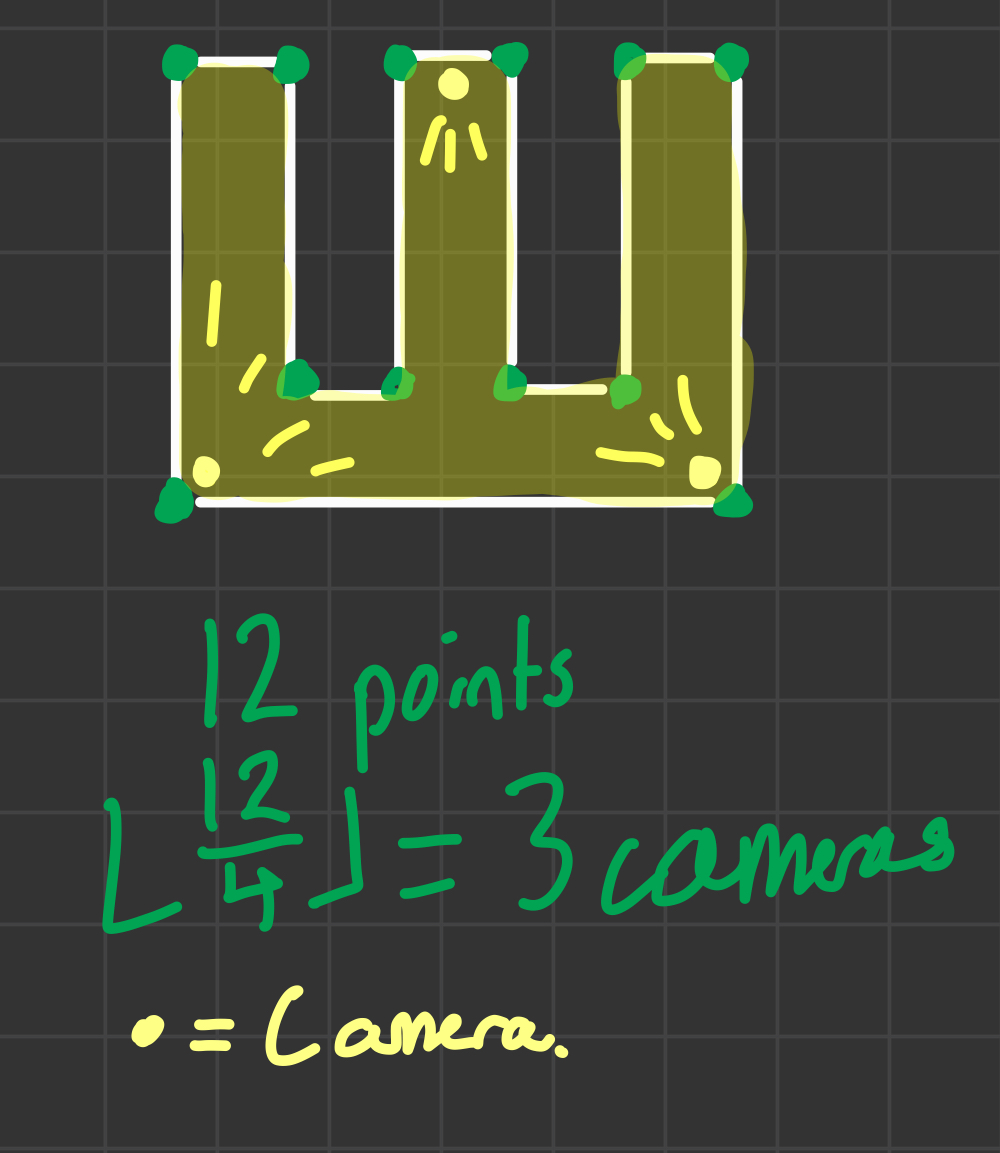 12 points
⌊12/4⌋ = 3 cameras
• = Camera.